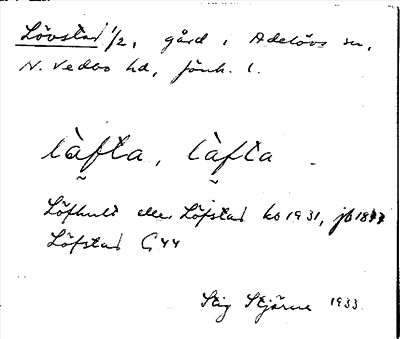 Lövstad 1/2, gård i Adelövs sn,
N. Vedbo hd, Jönk. l.
làfta, làfta
Löfhult eller Löfstad ko 1931, jb 1877
Löfstad G 44
Stig Stjärne 1933